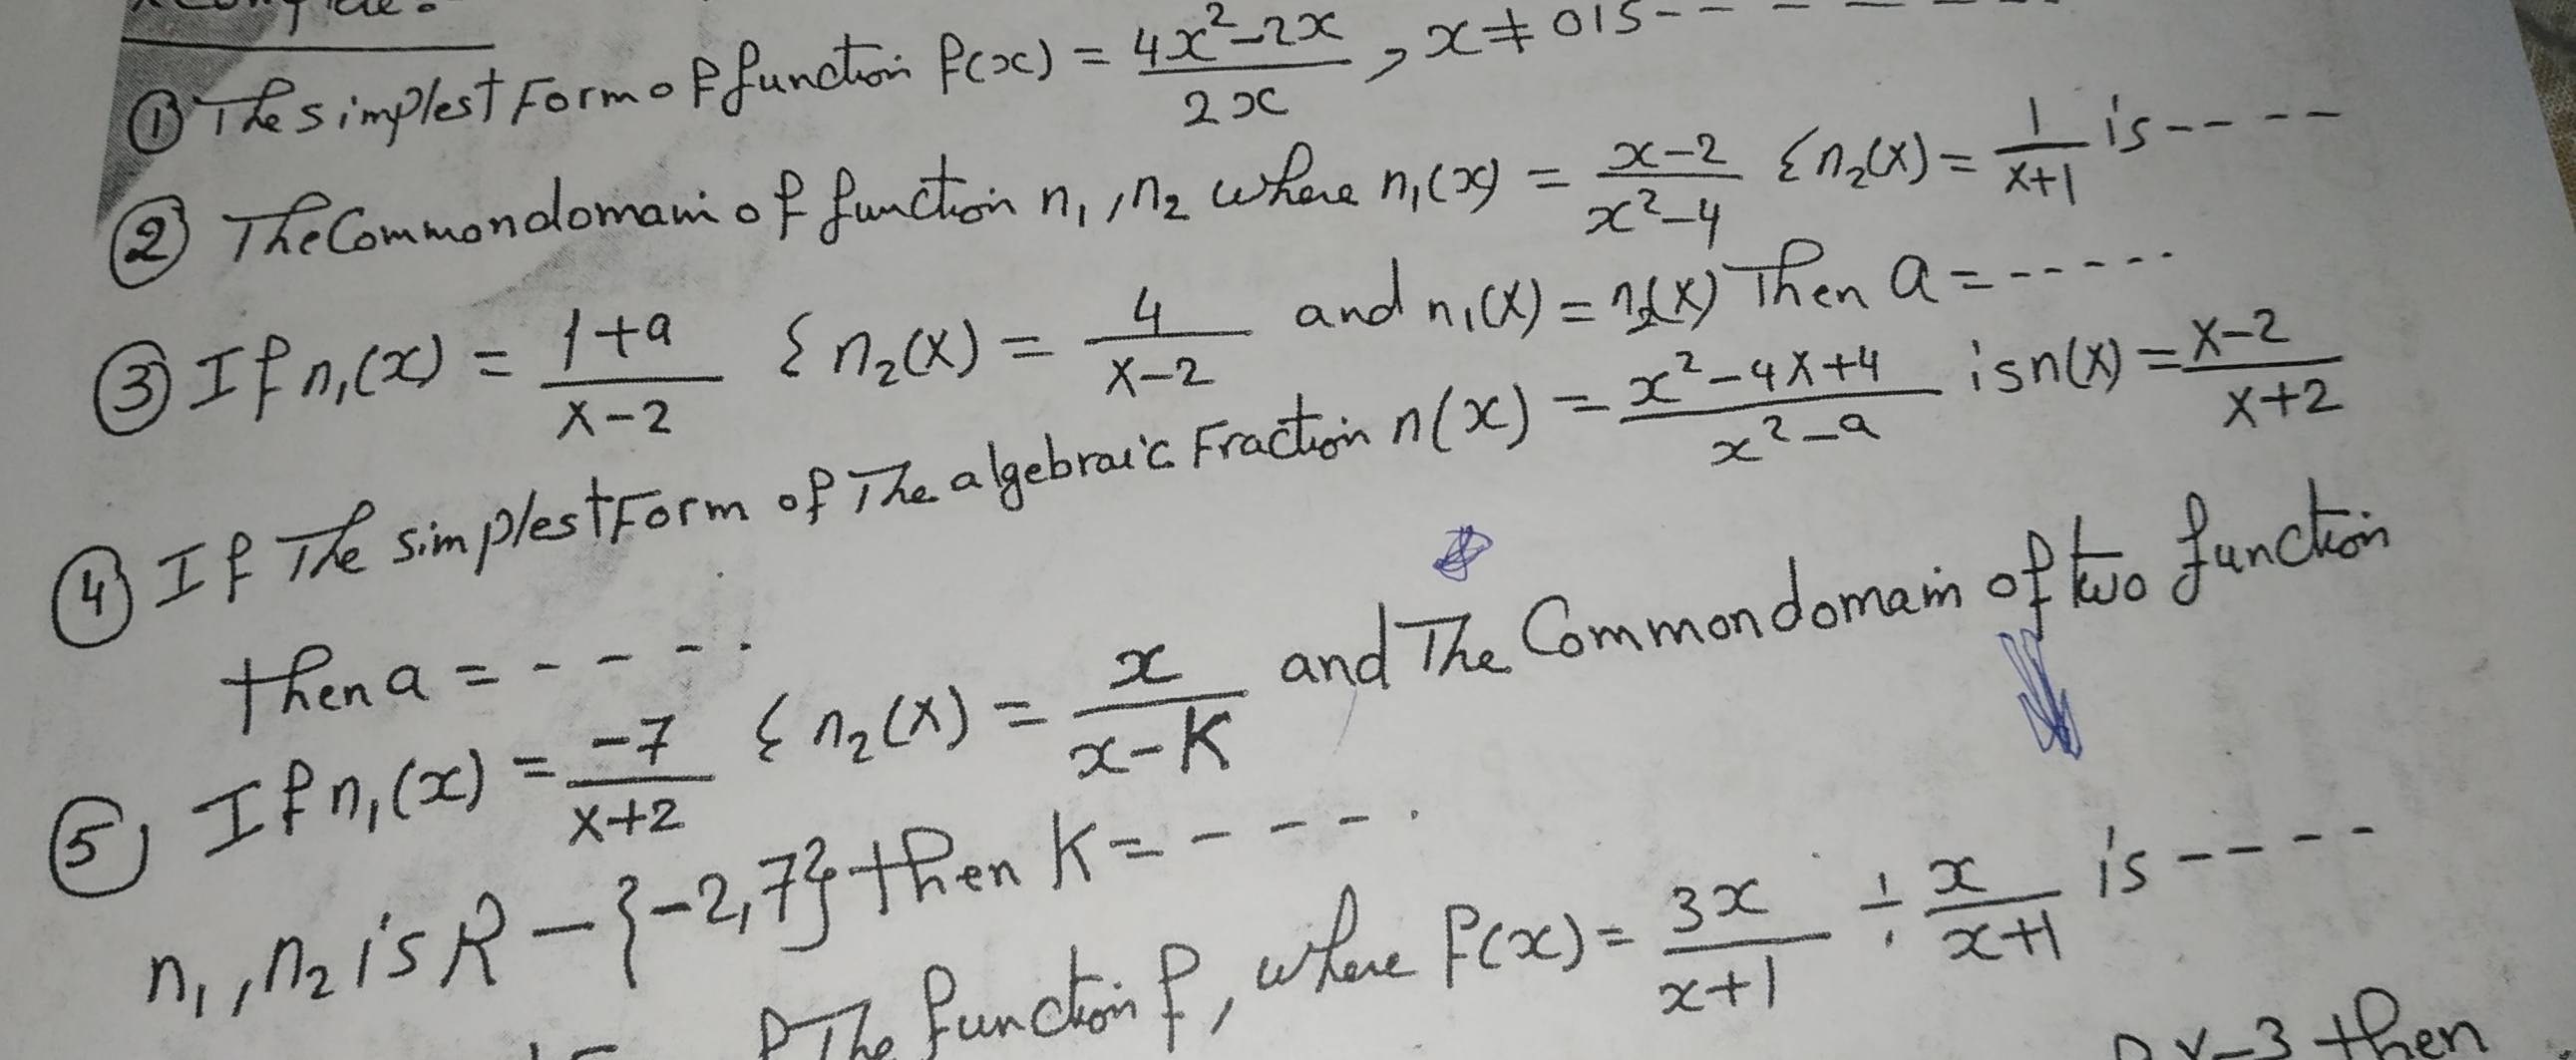 ① The simplest Form of function f(x) = (4x²-2x)/(2x) , x ≠ 0 is - - - - - -
② The Common domain of function n₁, n₂ where n₁(x) = (x-2)/(x²-4) & n₂(x) = 1/(x+1) is - - - - -
③ If n₁(x) = (1+a)/(x-2) & n₂(x) = 4/(x-2) and n₁(x) = n₂(x) Then a = - - - - -
④ If The simplest Form of The algebraic Fraction n(x) = (x²-4x+4)/(x²-a) is n(x) = (x-2)/(x+2)
then a = - - - - .
⑤ If n₁(x) = -7/(x+2) & n₂(x) = x/(x-K) and The Common domain of two function
n₁, n₂ is R - {-2, 7} then K = - - - - .
The function f, where f(x) = 3x/(x+1) ÷ x/(x+1) is - - - -
x-3 then